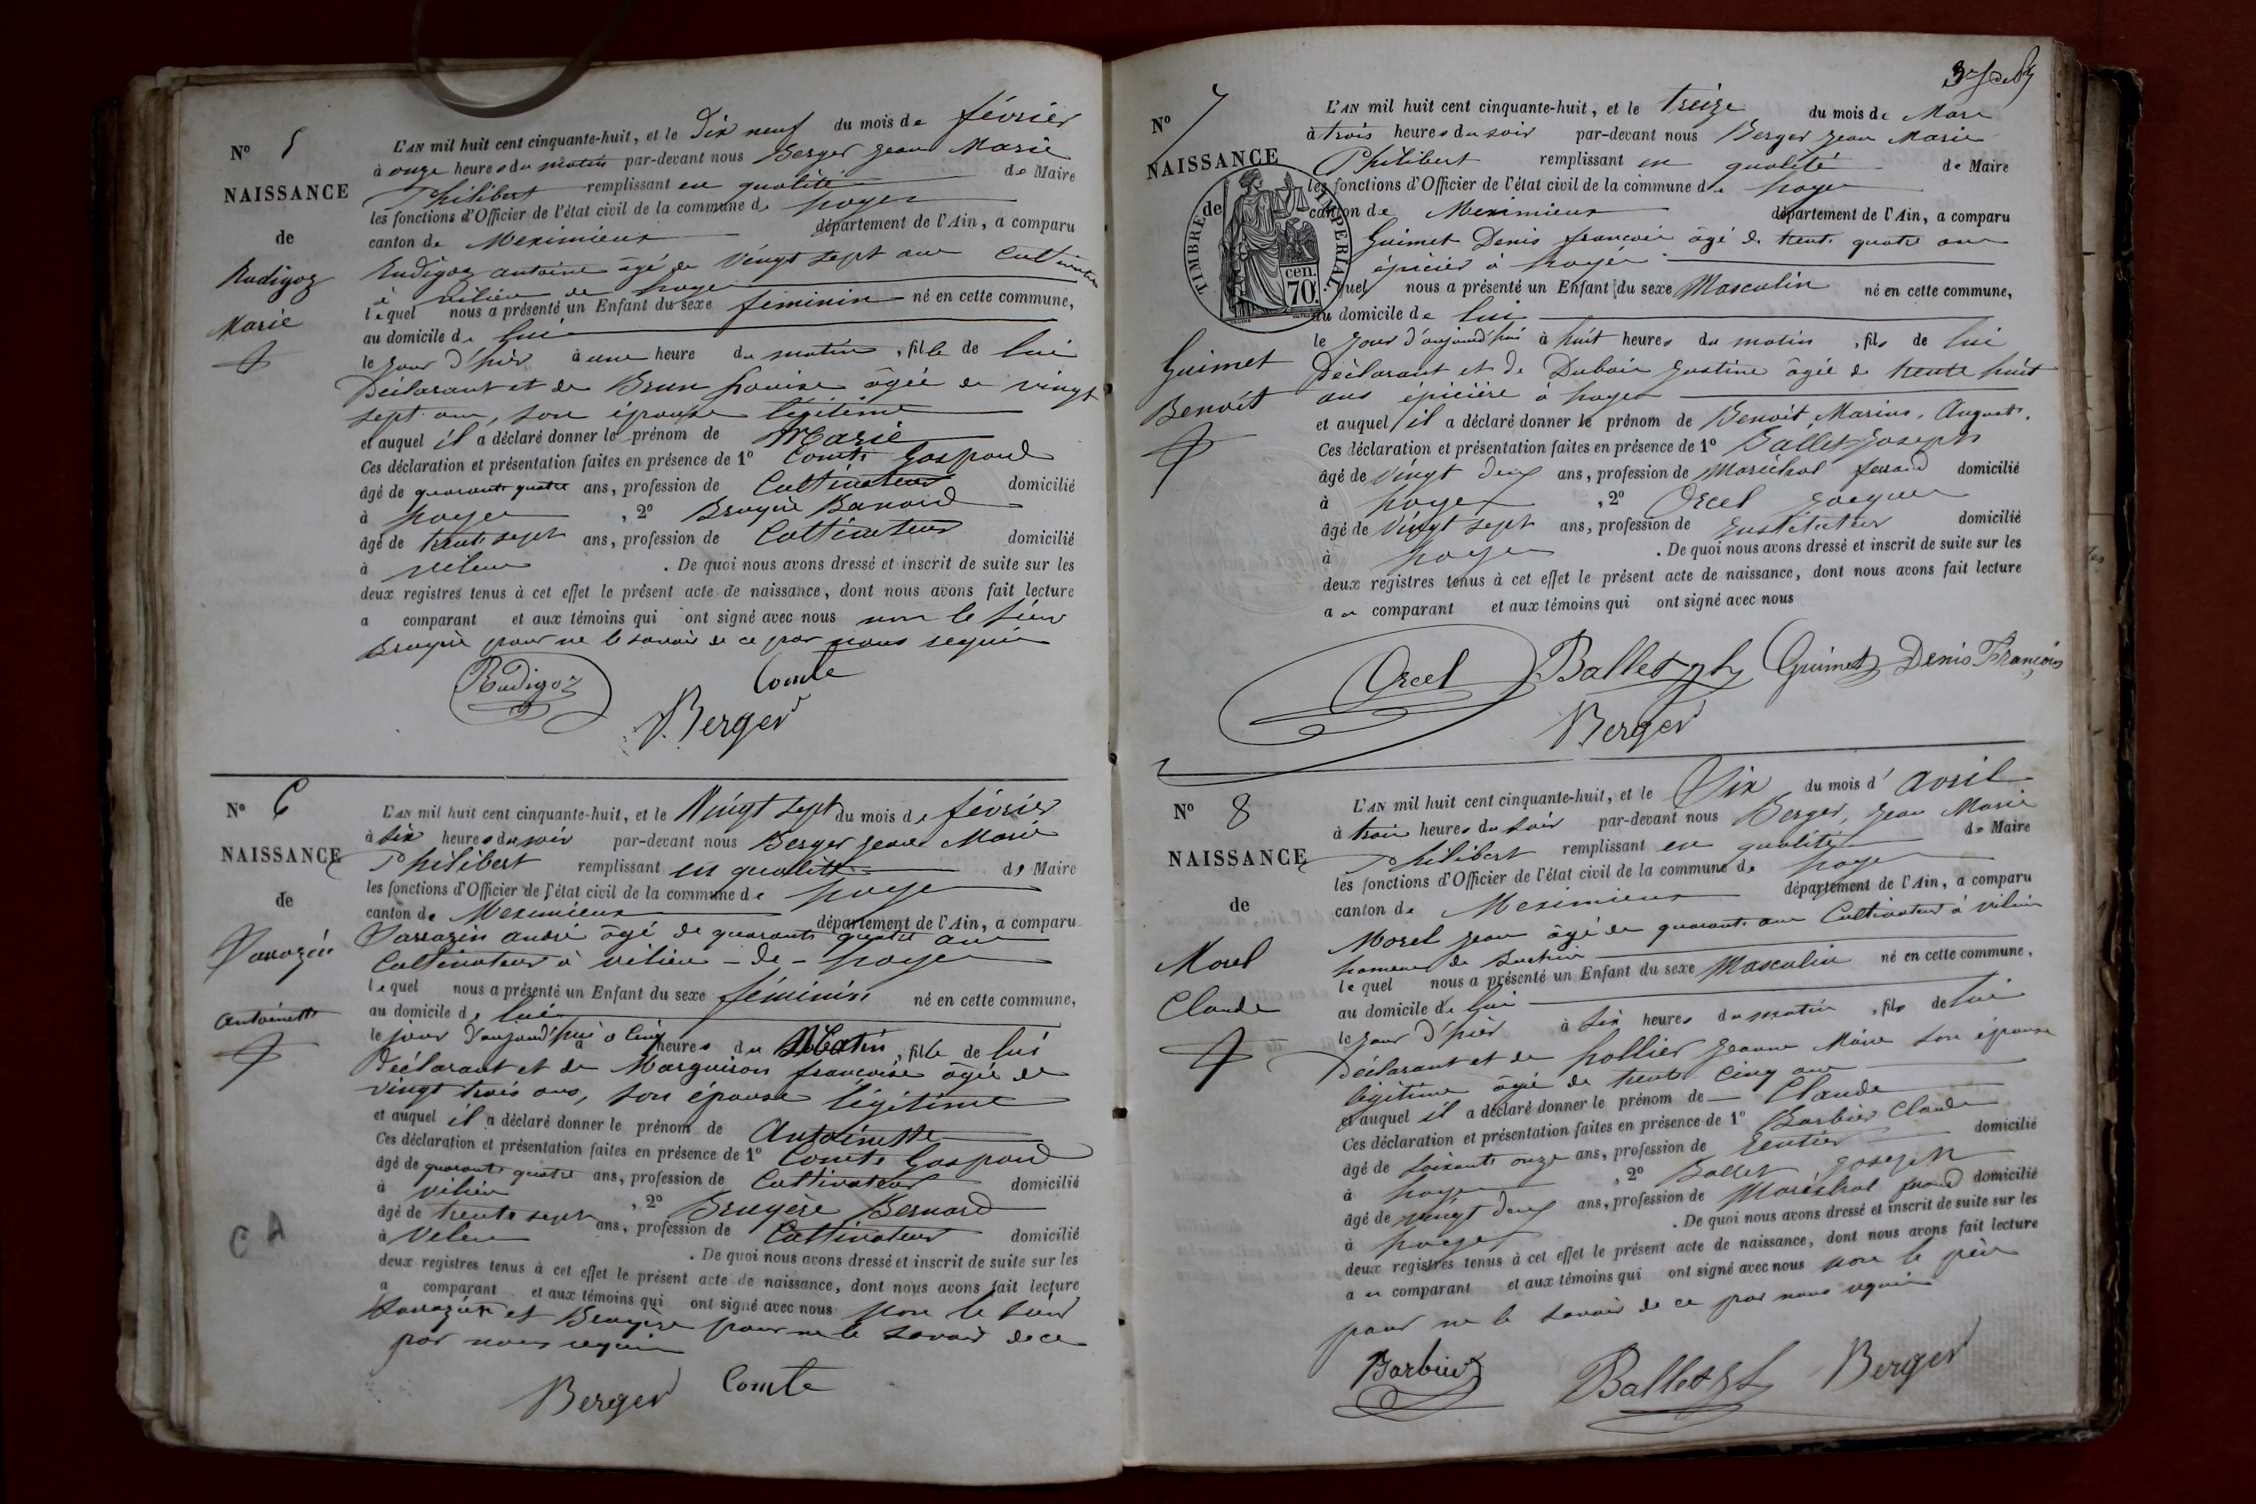 N° 5
NAISSANCE
de
Rudigoz
Marie
L'AN mil huit cent cinquante-huit, et le Dix neuf du mois de février
à onze heures du matin par-devant nous Berger Jean Marie
Philibert remplissant en qualité de Maire
les fonctions d'Officier de l'état civil de la commune de Loyes
canton de Meximieux département de l'Ain, a comparu
Rudigoz antoine âgé de vingt sept ans Cultivateur
à vilieu de Loyes
lequel nous a présenté un Enfant du sexe féminin né en cette commune,
au domicile de lui
le jour d'hier à une heure du matin, fille de lui
Déclarant et de Brun Louise âgée de vingt
sept ans, son épouse légitime
et auquel il a déclaré donner le prénom de Marie
Ces déclaration et présentation faites en présence de 1° Comte Gaspard
âgé de quarante quatre ans, profession de Cultivateur domicilié
à Loyes, 2° Bruyère
âgé de trente sept ans, profession de Cultivateur domicilié
à vilieu. De quoi nous avons dressé et inscrit de suite sur les
deux registres tenus à cet effet le présent acte de naissance, dont nous avons fait lecture
a comparant et aux témoins qui ont signé avec nous non le sieur
Bruyère pour ne le savoir de ce par nous requis
Rudigoz Comte
Berger
N° 6
NAISSANCE
de
Sarrazin
Antoinette
L'AN mil huit cent cinquante-huit, et le Vingt sept du mois de février
à six heures du soir par-devant nous Berger Jean Marie
Philibert remplissant en qualité de Maire
les fonctions d'Officier de l'état civil de la commune de Loyes
canton de Meximieux département de l'Ain, a comparu
Sarrazin andré âgé de quarante quatre ans
Cultivateur à vilieu - de - Loyes
lequel nous a présenté un Enfant du sexe féminin né en cette commune,
au domicile de lui
le jour d'aujourd'hui à Cinq heures du Matin, fille de lui
Déclarant et de Marguiron françoise âgée de
vingt trois ans, son épouse légitime
et auquel il a déclaré donner le prénom de Antoinette
Ces déclaration et présentation faites en présence de 1° Comte Gaspard
âgé de quarante quatre ans, profession de Cultivateur domicilié
à vilieu, 2° Bruyère Bernard
âgé de trente sept ans, profession de Cultivateur domicilié
à vilieu. De quoi nous avons dressé et inscrit de suite sur les
deux registres tenus à cet effet le présent acte de naissance, dont nous avons fait lecture
a comparant et aux témoins qui ont signé avec nous non le sieur
Sarrazin et Bruyère pour ne le savoir de ce
par nous requis
Berger Comte
C A
N° 7
NAISSANCE
de
TIMBRE IMPERIAL
70 cen.
Guimet
Benoit
L'AN mil huit cent cinquante-huit, et le treize du mois de Mars
à trois heures du soir par-devant nous Berger Jean Marie
Philibert remplissant en qualité de Maire
les fonctions d'Officier de l'état civil de la commune de Loyes
canton de Meximieux département de l'Ain, a comparu
Guimet Denis françois âgé de trente quatre ans
épicier à Loyes
quel nous a présenté un Enfant du sexe Masculin né en cette commune,
au domicile de lui
le jour d'aujourd'hui à huit heures du matin, fils de lui
Déclarant et de Dubois Justine âgée de trente huit
ans épicière à Loyes
et auquel il a déclaré donner le prénom de Benoit, Marius, Auguste.
Ces déclaration et présentation faites en présence de 1° Ballet Joseph
âgé de vingt deux ans, profession de Maréchal ferrand domicilié
à Loyes, 2° Orcel Jacques
âgé de vingt sept ans, profession de Instituteur domicilié
à Loyes. De quoi nous avons dressé et inscrit de suite sur les
deux registres tenus à cet effet le présent acte de naissance, dont nous avons fait lecture
au comparant et aux témoins qui ont signé avec nous
Orcel Ballet Jh Guimet Denis François
Berger
N° 8
NAISSANCE
de
Morel
Claude
L'AN mil huit cent cinquante-huit, et le Six du mois d'avril
à trois heures du soir par-devant nous Berger, Jean Marie
Philibert remplissant en qualité de Maire
les fonctions d'Officier de l'état civil de la commune de Loyes
canton de Meximieux département de l'Ain, a comparu
Morel Jean âgé de quarante ans Cultivateur à vilieu
hameau de
lequel nous a présenté un Enfant du sexe Masculin né en cette commune,
au domicile de lui
le jour d'hier à six heures du matin, fils de lui
Déclarant et de Hollier Jeanne Marie son épouse
légitime âgée de trente Cinq ans
et auquel il a déclaré donner le prénom de Claude
Ces déclaration et présentation faites en présence de 1° Barbier Claude
âgé de soixante onze ans, profession de Rentier domicilié
à Loyes, 2° Ballet, Joseph
âgé de vingt deux ans, profession de Maréchal ferrand domicilié
à Loyes. De quoi nous avons dressé et inscrit de suite sur les
deux registres tenus à cet effet le présent acte de naissance, dont nous avons fait lecture
au comparant et aux témoins qui ont signé avec nous non le père
pour ne le savoir de ce par nous requis
Barbier Ballet Jh Berger